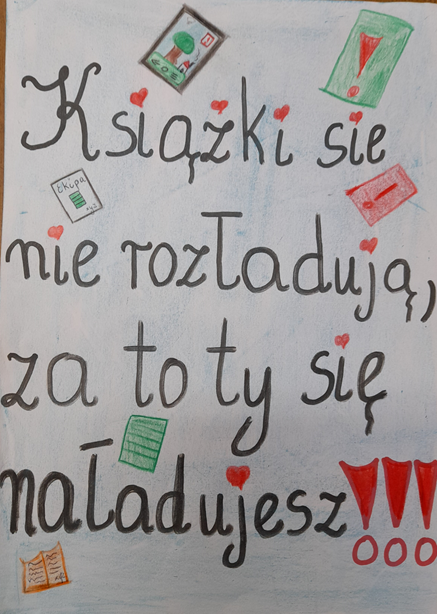 Książki sie
nie rozładują,
za to ty się
naładujesz!!!